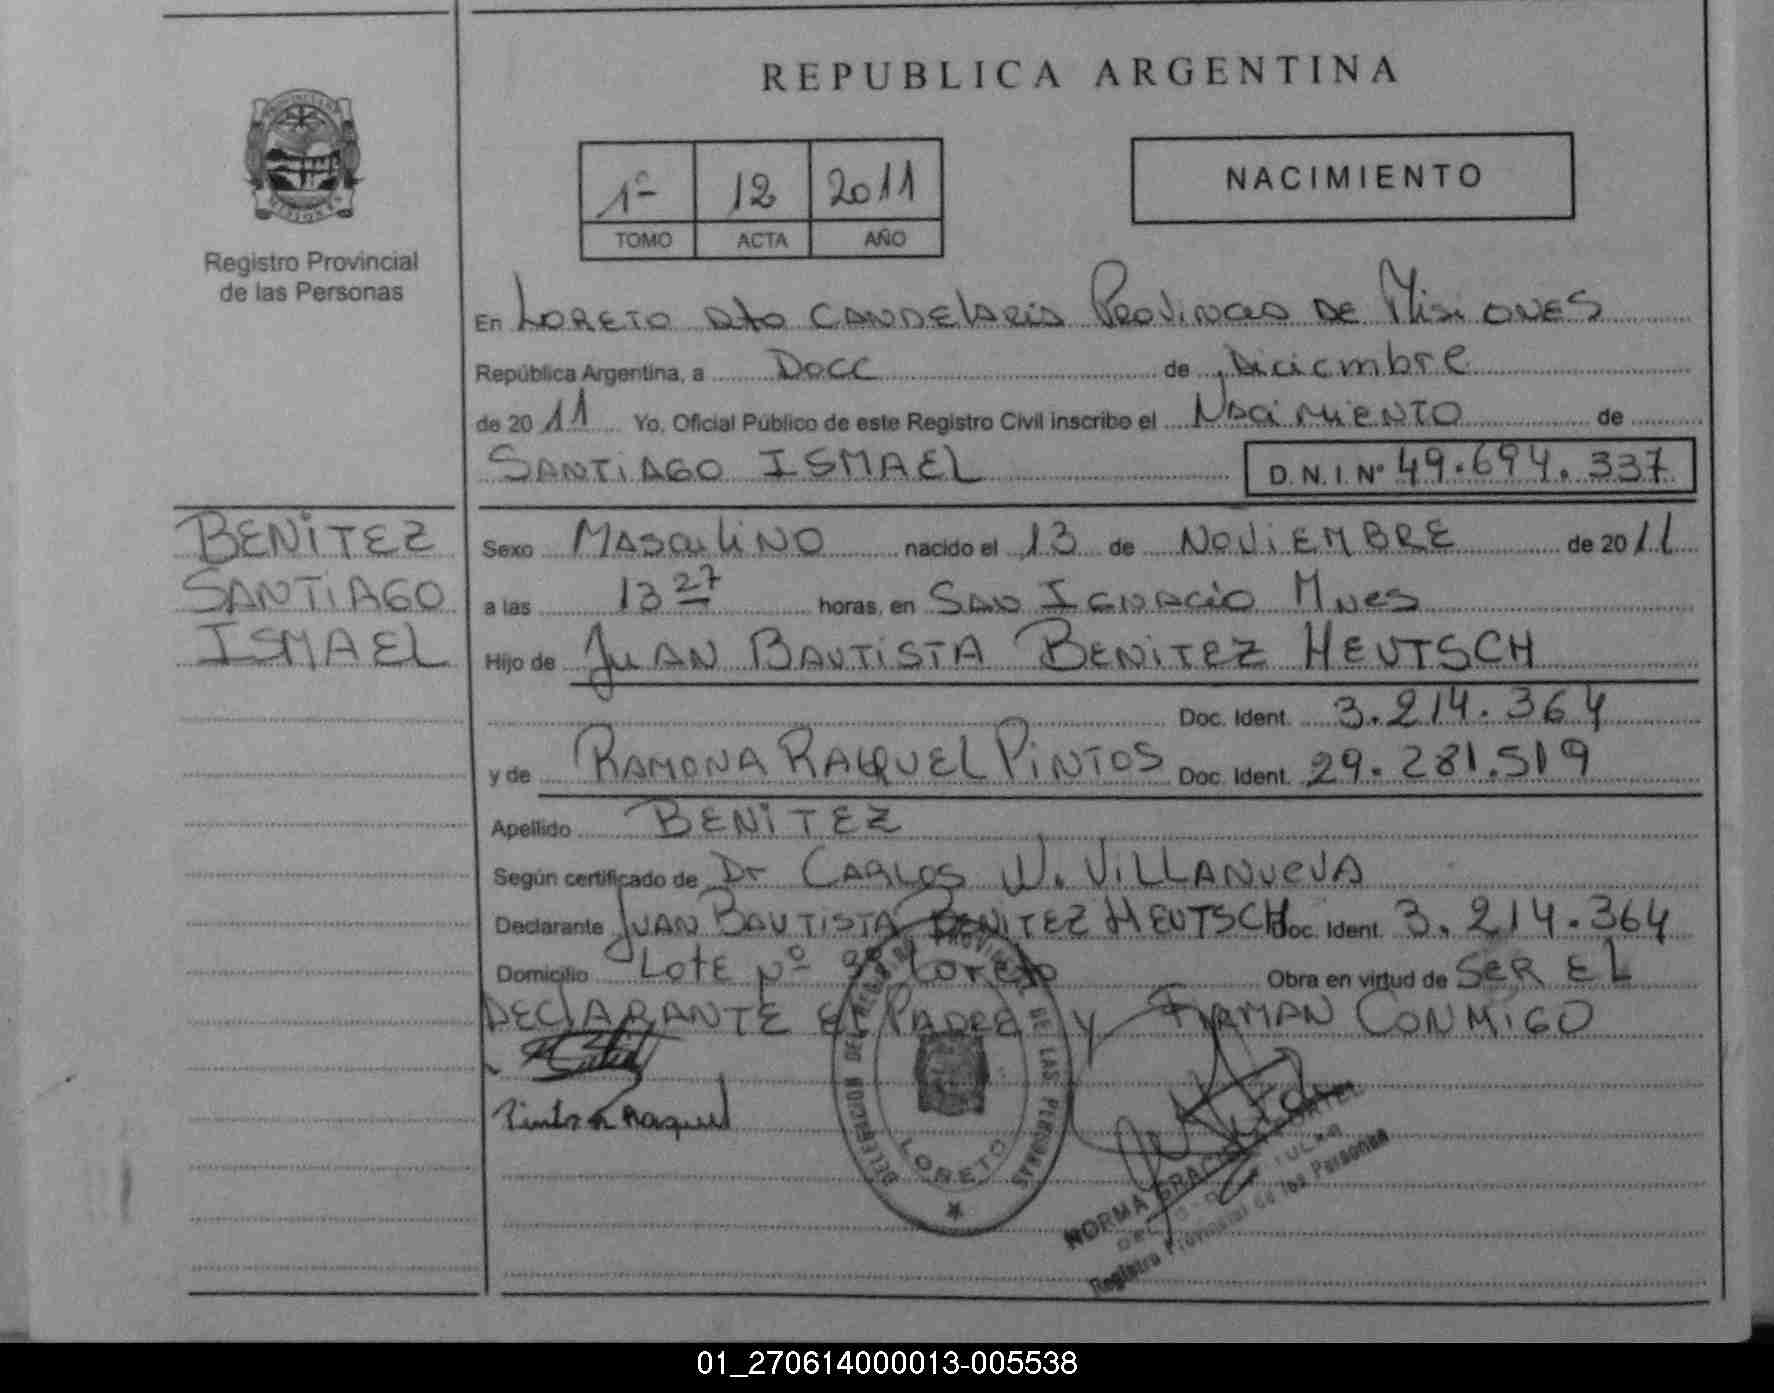 REPUBLICA ARGENTINA
PROVINCIA DE MISIONES
Registro Provincial
de las Personas
1º 12 2011
TOMO ACTA AÑO
NACIMIENTO
En LORETO Dto CANDELARIA PROVINCIA DE MISIONES
República Argentina, a DOCE de Diciembre
de 2011 Yo, Oficial Público de este Registro Civil inscribo el NACIMIENTO de
SANTIAGO ISMAEL D.N.I. Nº 49.694.337
BENITEZ
SANTIAGO
ISMAEL
Sexo MASCULINO nacido el 13 de NOVIEMBRE de 2011
a las 13 27 horas, en SAN IGNACIO Mnes
Hijo de JUAN BAUTISTA BENITEZ HEUTSCH
Doc. Ident. 3.214.364
y de RAMONA RAQUEL PINTOS Doc. Ident. 29.281.519
Apellido BENITEZ
Según certificado de Dr CARLOS W. VILLANUEVA
Declarante JUAN BAUTISTA BENITEZ HEUTSCH Doc. Ident. 3.214.364
Domicilio LOTE Nº Loreto Obra en virtud de SER EL
DECLARANTE EL PADRE Y FIRMAN CONMIGO
Raquel
DELEGACION DEL REGISTRO PROVINCIAL DE LAS PERSONAS
LORETO
NORMA
Registro Provincial de las Personas
01_270614000013-005538